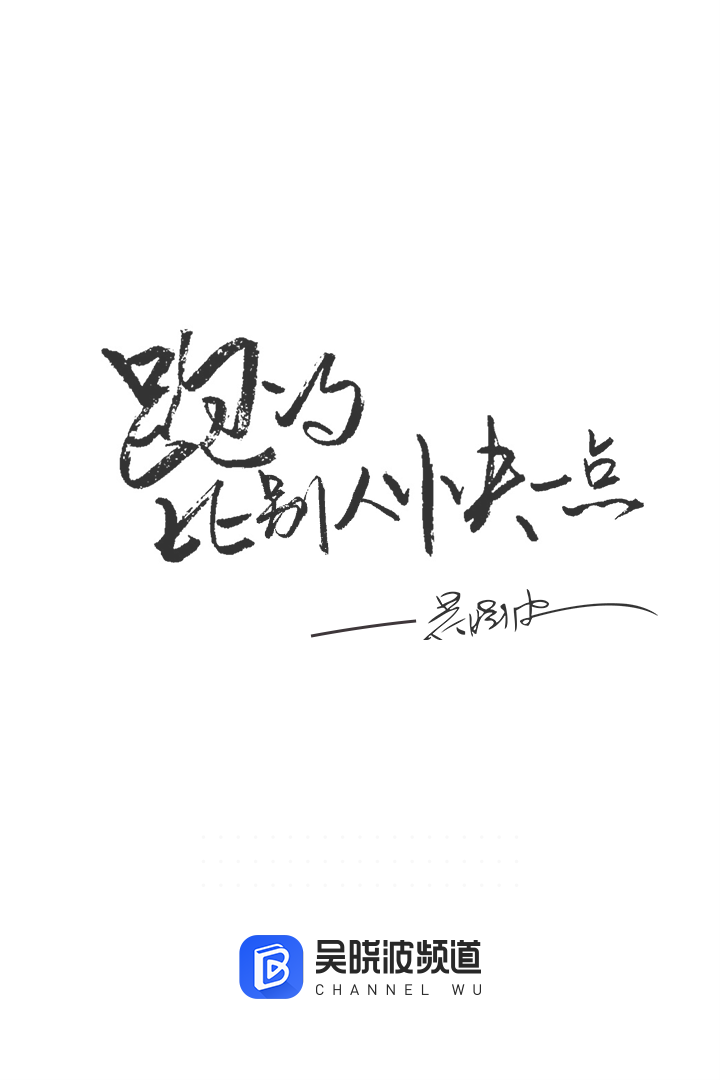 跑得
比别人快一点
——吴晓波
吴晓波频道
CHANNEL WU